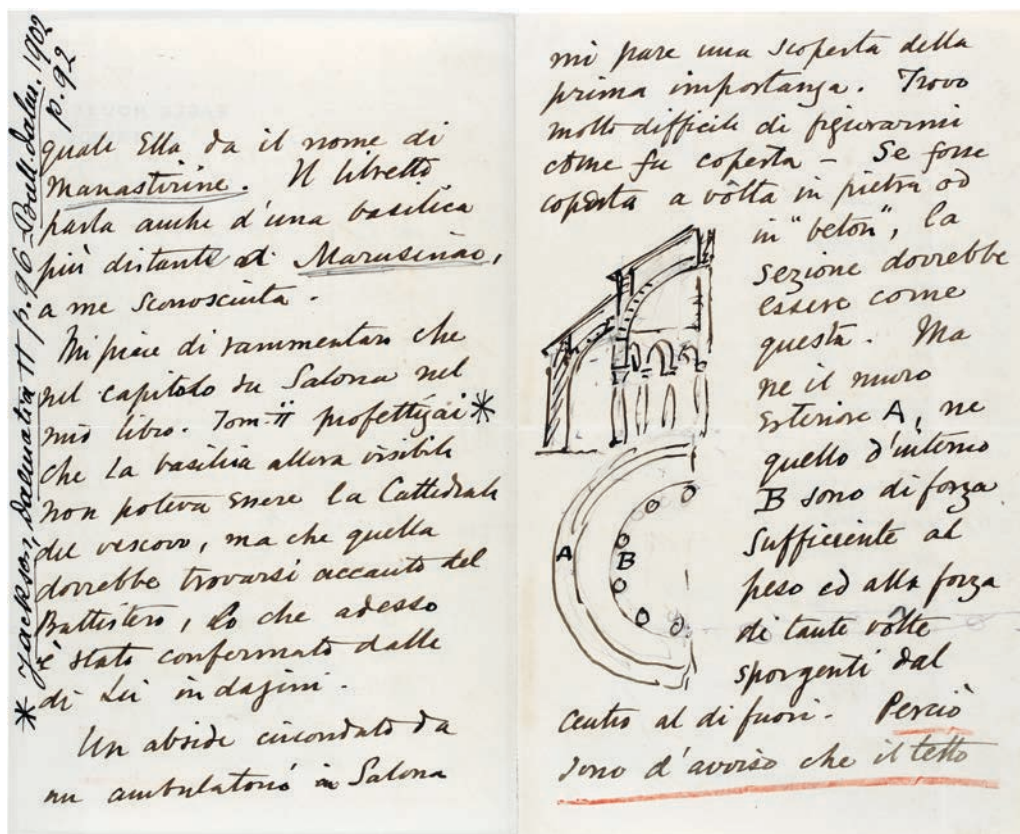 * Jackson, Dalmatia II p. 96 - Bull. dalm. 1902
p. 92
quale Ella da il nome di
Manastirine. Il libretto
parla anche d'una basilica
più distante at Marusinac,
a me sconosciuta.
Mi piace di rammentare che
nel capitolo su Salona nel
mio libro. Tom. II profettizai *
che la basilica allora visibile
non poteva essere la Cattedrale
del vescovo, ma che quella
dovrebbe trovarsi accanto del
Battistero, lo che adesso
e' stato confermato dalle
di Lei indagini.
Un abside circondato da
un ambulatorio in Salona
mi pare una scoperta della
prima importanza. Trovo
molto difficile di figurarmi
come fu coperta – Se fosse
coperta a vòlta in pietra od
in "beton", la
sezione dovrebbe
essere come
questa. Ma
ne il muro
esteriore A, ne
quello d'interno
B sono di forza
sufficiente al
peso ed alla forza
di tante vòlte
sporgenti dal
centro al di fuori. Perciò
sono d'avviso che il tetto
A
B